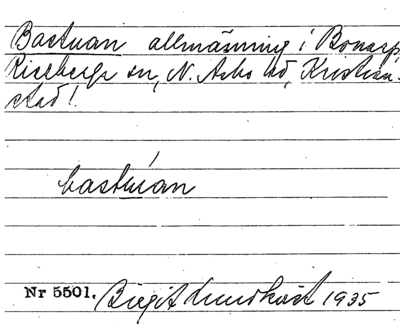 Bastuan allmänning i Bonarp
Riseberga sn, N. Åsbo hd, Kristian-
stad!
bastúan
Nr 5501. Birgit Lundkvist 1935